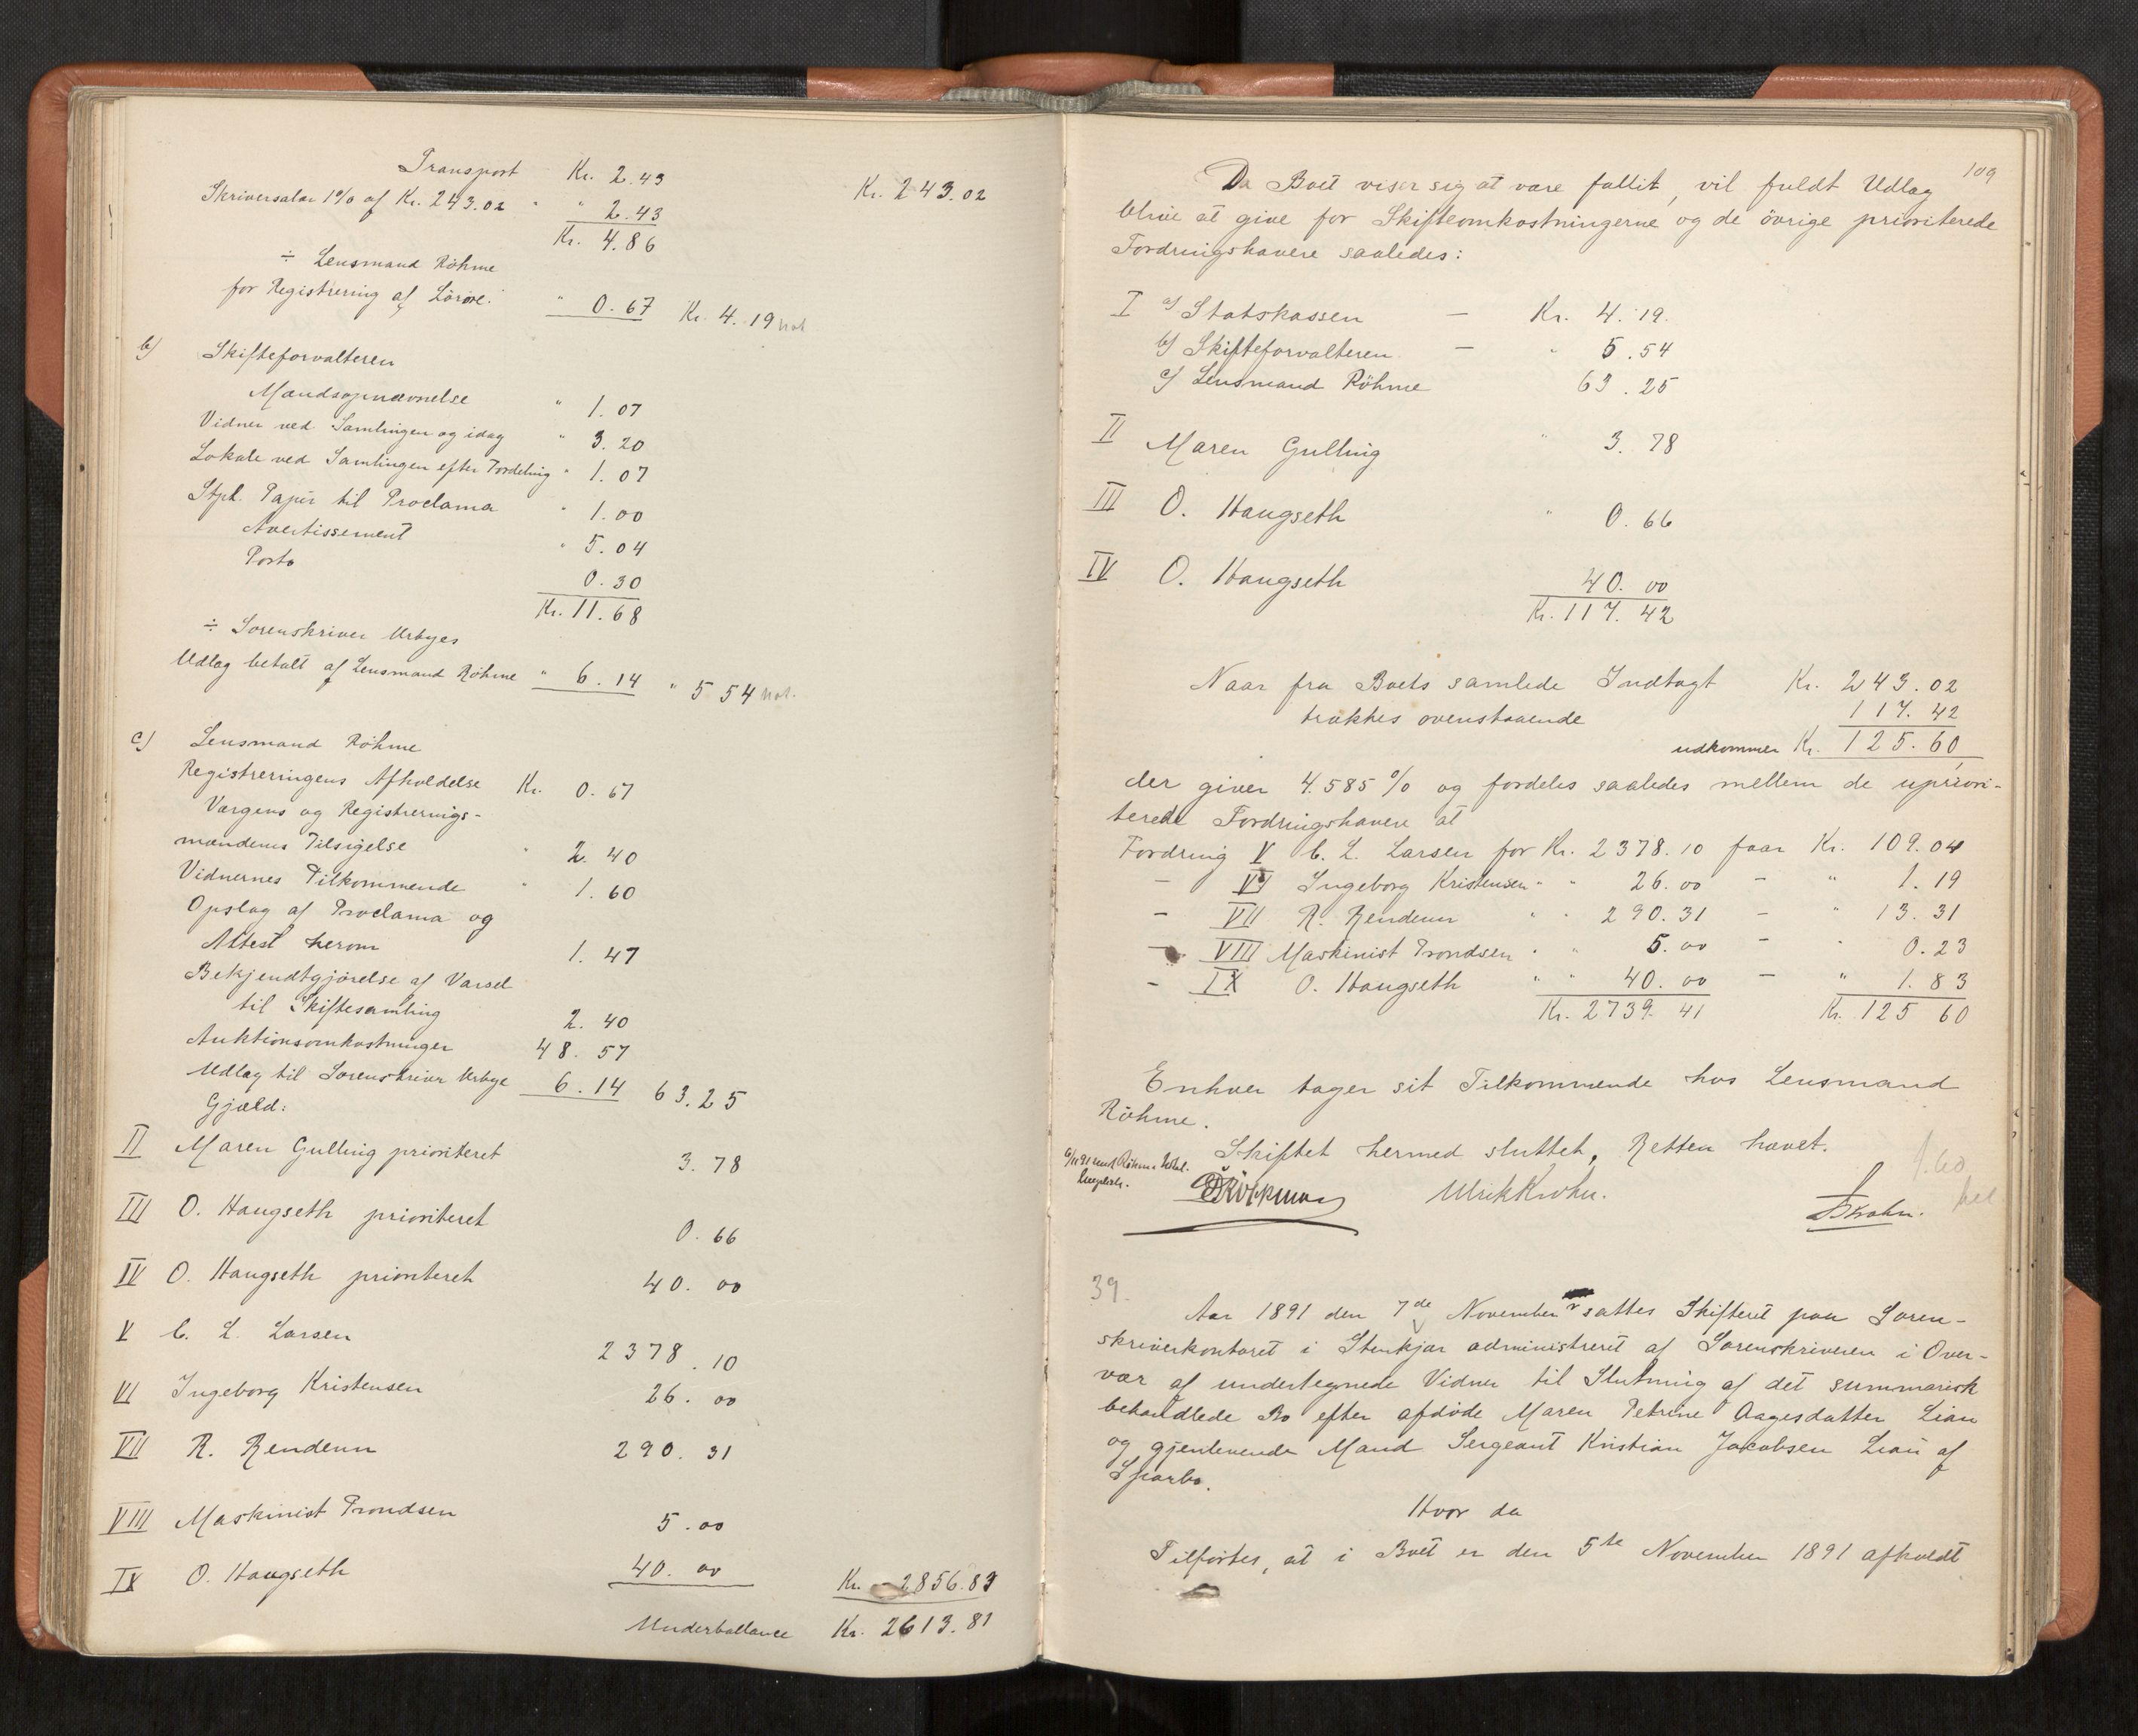 Transport Kr. 2.43 Kr. 243.02
Skriversalar 1% af Kr. 243.02 " " 2.43
Kr. 4.86
÷ Lensmand Röhme
for Registrering af Lösöre. " 0.67 Kr. 4.19 not
b) Skifteforvalteren
Mandsopnævnelse " 1.07
Vidner ved Samlingen og idag " 3.20
Lokale ved Samlingen efter Fordeling " 1.07
Stpl. Papir til Proclama " 1.00
Avertissement " 5.04
Porto 0.30
Kr. 11.68
÷ Sorenskriver Urbyes
Udlæg betalt af Lensmand Röhme " 6.14 " 5 54 not.
c) Lensmand Röhme
Registreringens Afholdelse Kr. 0.67
Værgens og Registrerings-
mændenes Tilsigelse " 2.40
Vidnernes Tilkommende " 1.60
Opslag af Proclama og
Attest herom 1.47
Bekjendtgjörelse af Varsel
til Skiftesamling 2.40
Auktionsomkostninger 48.57
Udlæg til Sorenskriver Urbye 6.14 63.25
Gjæld:
II Maren Gulling prioriteret 3.78
III O. Haugseth prioriteret 0.66
IV O. Haugseth prioriteret 40.00
V C. L. Larsen 2378.10
VI Ingeborg Kristensen 26.00
VII R. Rendenn 290.31
VIII Maskinist Trondsen 5.00
IX O. Haugseth 40.00 Kr. 2856.83
Underballance Kr. 2613.81
109
Da Boet viser sig at være fallit, vil fuldt Udlæg
blive at give for Skifteomkostningerne og de övrige prioriterede
Fordringshavere saaledes:
I a) Statskassen — Kr. 4.19.
b) Skifteforvalteren — " 5.54
c) Lensmand Röhme 63.25
II Maren Gulling " 3.78
III O. Haugseth " 0.66
IV O. Haugseth 40.00
Kr. 117.42
Naar fra Boets samlede Indtægt Kr. 243.02
trækkes ovenstaaende 117.42
udkommer Kr. 125.60
der giver 4.585% og fordeles saaledes mellem de upriori-
terede Fordringshavere at
Fordring V C. L. Larsen for Kr. 2378.10 faar Kr. 109.04
— VI Ingeborg Kristensen " " 26.00 — " 1.19
— VII R. Rendenn " " 290.31 — " 13.31
— VIII Maskinist Trondsen " " 5.00 — " 0.23
— IX O. Haugseth " " 40.00 — " 1.83
Kr. 2739.41 Kr. 125 60
Enhver tager sit Tilkommende hos Lensmand
Röhme.
Skiftet hermed sluttet, Retten hævet.
Ulrik Krohn.
Krohn.
39.
Aar 1891 den 7de November sattes Skifteret paa Soren-
skriverkontoret i Stenkjær administreret af Sorenskriveren i Over-
vær af undertegnede Vidner til Slutning af det summarisk
behandlede Bo efter afdöde Maren Petrine Aagesdatter Lian
og gjenlevende Mand Sergeant Kristian Jacobsen Lian af
Sparbo.
Hvor da
Tilförtes, at i Boet er den 5te November 1891 afholdt